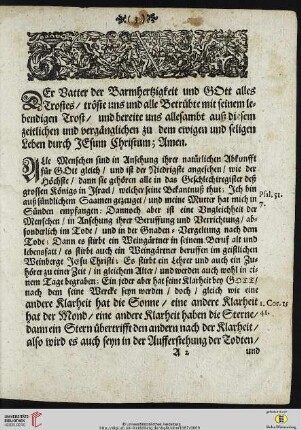 ( 3 )
DEr Vatter der Barmhertzigkeit und GOtt alles
Trostes / tröste uns und alle Betrübte mit seinem le-
bendigen Trost / und bereite uns allesambt auß diesem
zeitlichen und vergänglichen zu dem ewigen und seligen
Leben durch JEsum Christum; Amen.
Alle Menschen sind in Ansehung ihrer natürlichen Abkunfft
für GOtt gleich / und ist der Niedrigste angesehen / wie der
Höchste / dann sie gehören alle in das Geschlechtregister deß
grossen Königs in Israel / welcher seine Bekantnuß thut: Ich bin
auß sündlichem Saamen gezeuget / und meine Mutter hat mich in
Psal. 51.
Sünden empfangen: Dannoch aber ist eine Ungleichheit der
7.
Menschen / in Ansehung ihrer Beruffung und Verrichtung / ab-
sonderlich im Tode / und in der Gnaden-Vergeltung nach dem
Tode: Dann es stirbt ein Weingärtner in seinem Beruf alt und
lebenssatt / es stirbt auch ein Weingärtner beruffen im geistlichen
Weinberge JEsu Christi: Es stirbt ein Lehrer und auch ein Zu-
hörer zu einer Zeit / in gleichem Alter / und werden auch wohl in ei-
nem Tage begraben. Ein jeder aber hat seine Klarheit bey GOTT /
nach dem seine Wercke seyn werden / doch / gleich wie eine
andere Klarheit hat die Sonne / eine andere Klarheit
1. Cor. 15
hat der Mond / eine andere Klarheit haben die Sterne /
41.
dann ein Stern übertrifft den andern nach der Klarheit /
also wird es auch seyn in der Aufferstehung der Todten /
A 2 und
UNIVERSITÄTS-
BIBLIOTHEK
HEIDELBERG
© Universitätsbibliothek Heidelberg